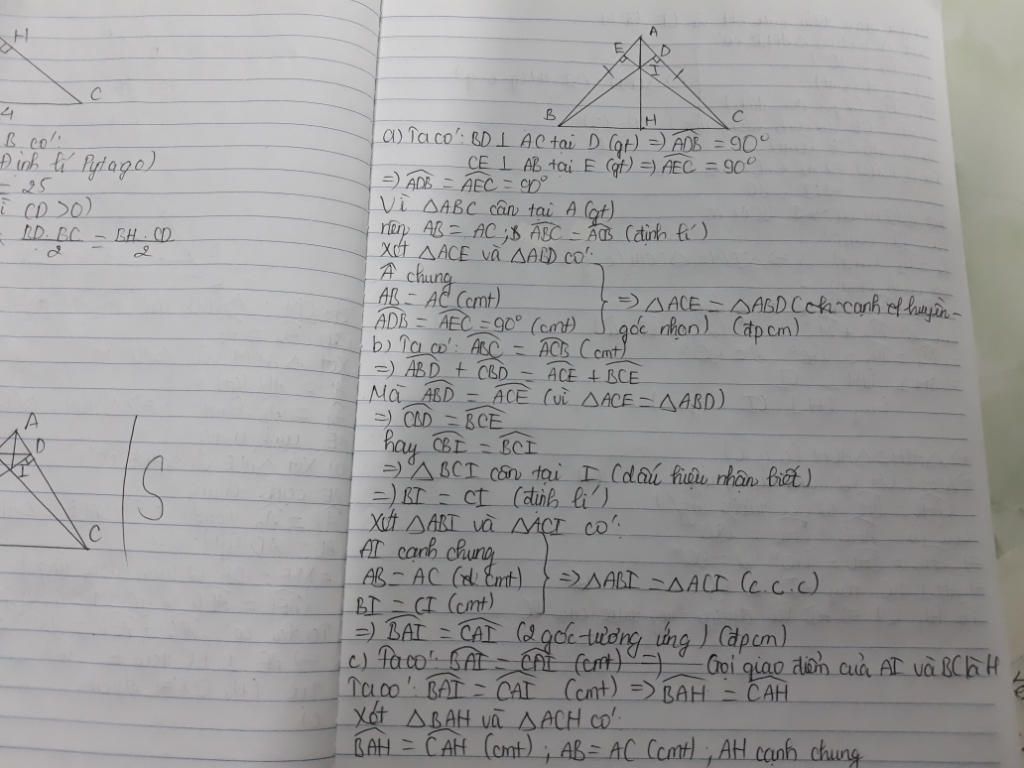 H
C
4
B có:
Định lí Pytago)
= 25
CD > 0)
BD.BC/2 = BH.CD/2
A
D
I
C
S
A
E
D
I
B
H
C
a) Ta có: BD ⊥ AC tại D (gt) => ADB = 90°
CE ⊥ AB tại E (gt) => AEC = 90°
=> ADB = AEC = 90°
Vì △ABC cân tại A (gt)
nên AB = AC; ABC = ACB (định lí)
Xét △ACE và △ABD có:
Â chung
AB = AC (cmt)
ADB = AEC = 90° (cmt)
=> △ACE = △ABD (cạnh huyền-
góc nhọn) (đpcm)
b) Ta có: ABC = ACB (cmt)
=> ABD + CBD = ACE + BCE
Mà ABD = ACE (vì △ACE = △ABD)
=> CBD = BCE
hay CBI = BCI
=> △BCI cân tại I (dấu hiệu nhận biết)
=> BI = CI (định lí)
Xét △ABI và △ACI có:
AI cạnh chung
AB = AC (cmt)
BI = CI (cmt)
=> △ABI = △ACI (c.c.c)
=> BAI = CAI (2 góc tương ứng) (đpcm)
c) Ta có: BAI = CAI (cmt) => Gọi giao điểm của AI và BC là H
Ta có: BAI = CAI (cmt) => BAH = CAH
Xét △BAH và △ACH có:
BAH = CAH (cmt); AB = AC (cmt); AH cạnh chung